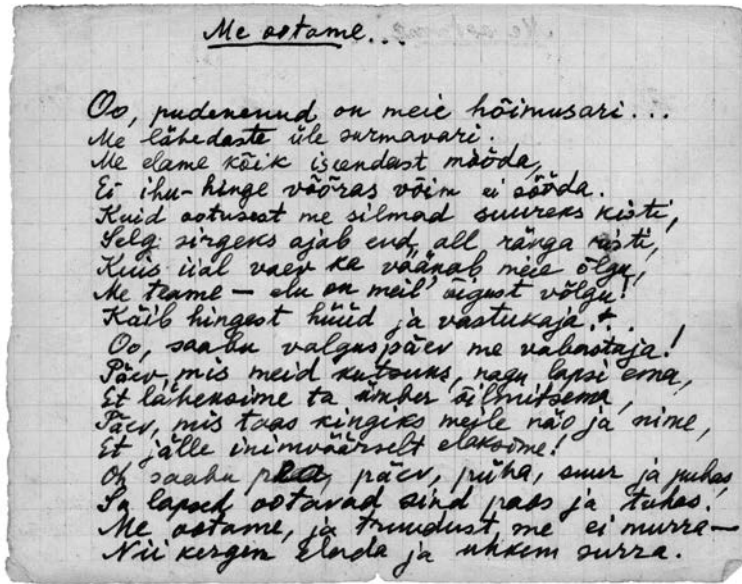 Me ootame...
Oo, pudenenud on meie hõimusari...
Me lähedaste üle surmavari.
Me elame kõik iseendast mööda,
Ei ihu-hinge võõras võim ei sööda.
Kuid ootusest me silmad suureks kisti,
Selg sirgeks ajab end all ränga risti,
Kuis iial vaev ka väänab meie õlgu,
Me teame – elu on meil' õigust võlgu!
Käib hingest hüüd ja vastukaja...
Oo, saabu valguspäev me vabastaja!
Päev, mis meid kutsuks, nagu lapsi ema,
Et läheksime ta ümber õilmitsema,
Päev, mis taas kingiks meile näo ja nime,
Et jälle inimväärselt elaksime!
Oh saabu päev, püha, suur ja puhas,
Su lapsed ootavad sind paos ja tuhas.
Me ootame, ja truudust me ei murra—
Nii kergem elada ja uhkem surra.